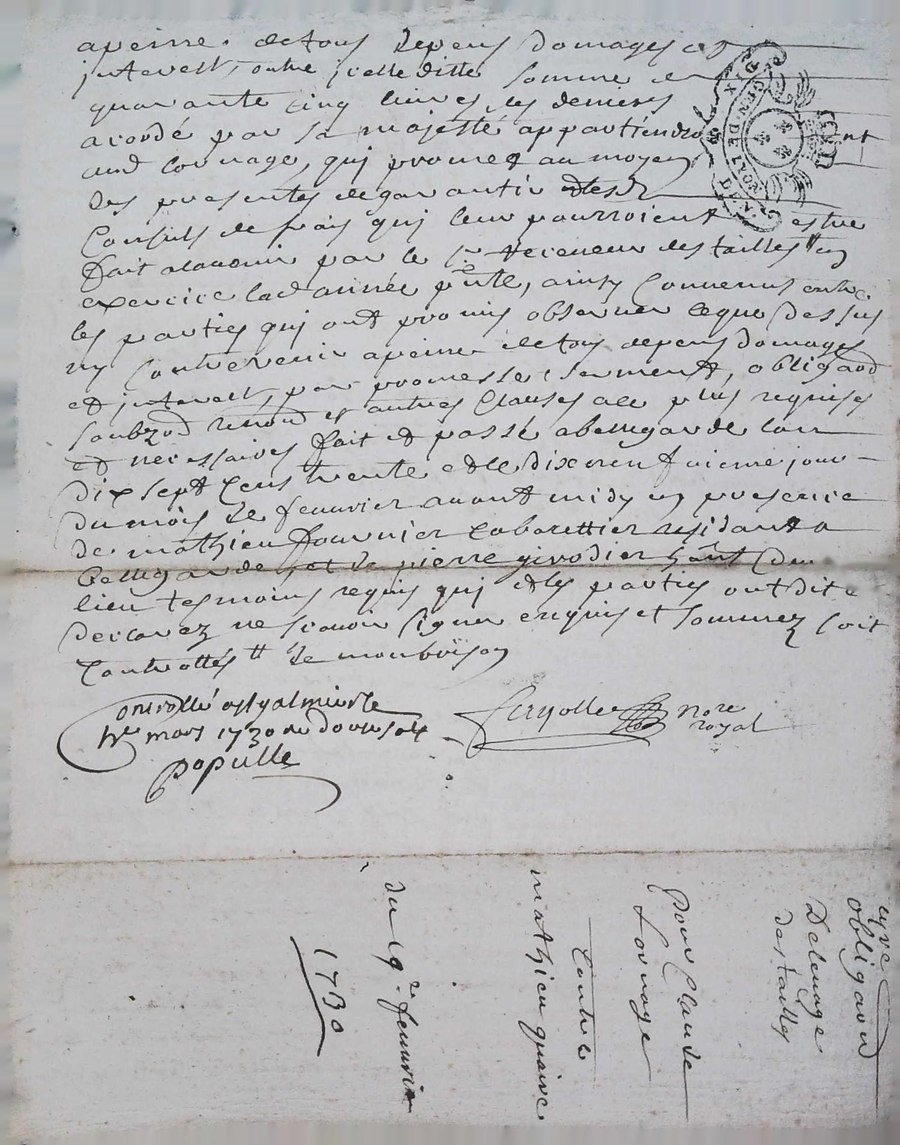 apeine de tous depens domages et
interest, outre jcelle ditte somme de
quarante cinq livres, les deniers
acordé par sa majesté appartiendront
aud Cornage, qui promet au moyen
des presentes de garantir
Consuls de frais qui leur pourroient estre
fait a lavenir par le sr Receveur des tailles en
exercice lad année pnte, ainsy Convenus entre
les parties qui ont promis observer ce que dessus
ny Contrevenir apeine de tous depens domages
et interest, par promesse, serment, obligaon
soubzon renon et autres Clauses ace plus requises
et necessaires fait et passé a bellegarde lan
dix sept Cens trente et le dix neufvieme jour
du mois de fevvrier avant midy en presence
de mathieu fournier Cabarettier residant a
bellegarde et de pierre girodier dud
lieu tesmoins requis qui et les parties ont dit et
declarez ne scavoir signer enquis et sommez soit
Controllés
Controllé a st galmier le
mars 1730 Reçu douze sols
populle
nore
royal
DIX
GEN. DE LYON
obligaon
Deleuage
des tailles
pour Claude
Cornage
Contre
mathieu quaire
du 19e fevvrier
1730